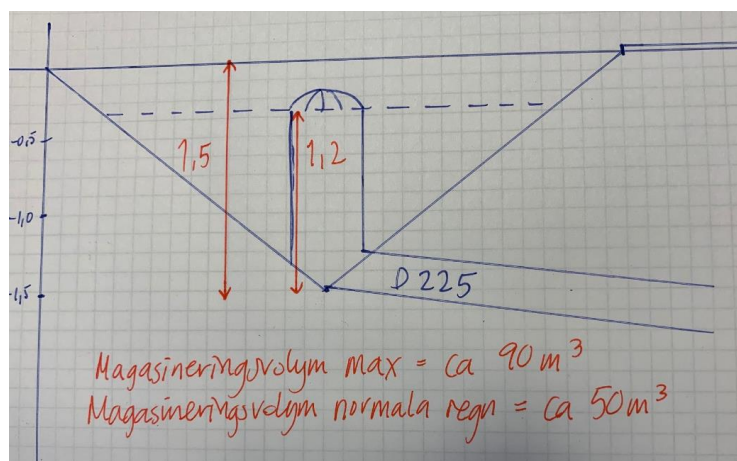 -0,5
1,5
1,2
-1,0
-1,5
D 225
Magasineringsvolym max = ca 90 m³
Magasineringsvolym normala regn = ca 50 m³